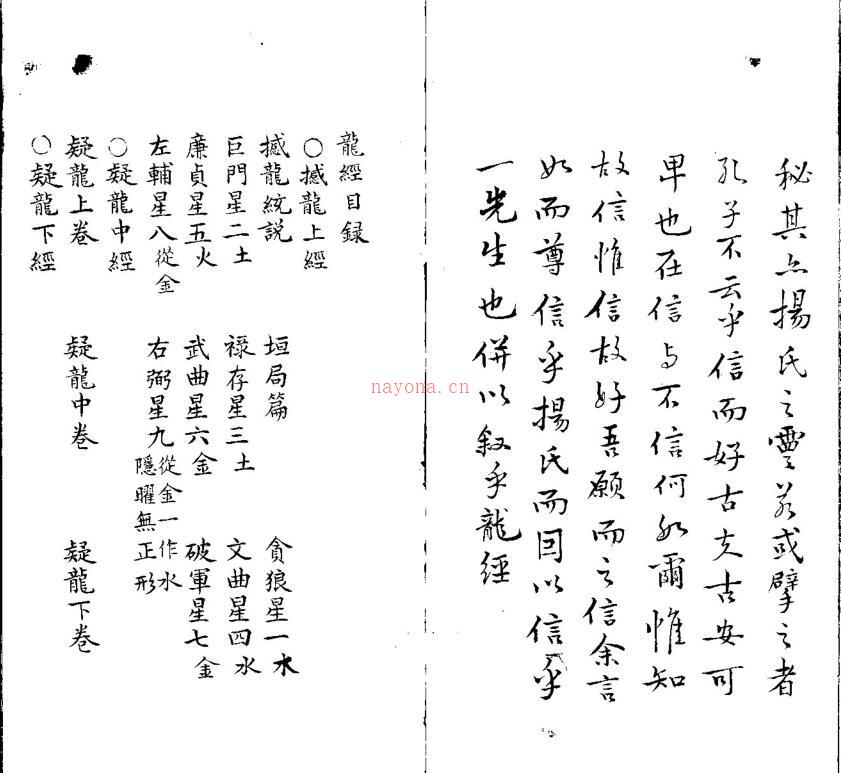 秘其亦揚氏之靈若或擘之者
孔子不云乎信而好古夫古安可
卑也在信与不信何如爾惟知
故信惟信故好吾願而之信余言
如而尊信乎揚氏而因以信乎
一先生也併以叙乎龍經
龍經目録
○撼龍上經
撼龍統説 垣局篇 貪狼星一水
巨門星二土 禄存星三土 文曲星四水
廉貞星五火 武曲星六金 破軍星七金
左輔星八從金 右弼星九從金一作水隱曜無正形
○疑龍中經
疑龍上卷 疑龍中卷 疑龍下卷
○疑龍下經
nayona.cn